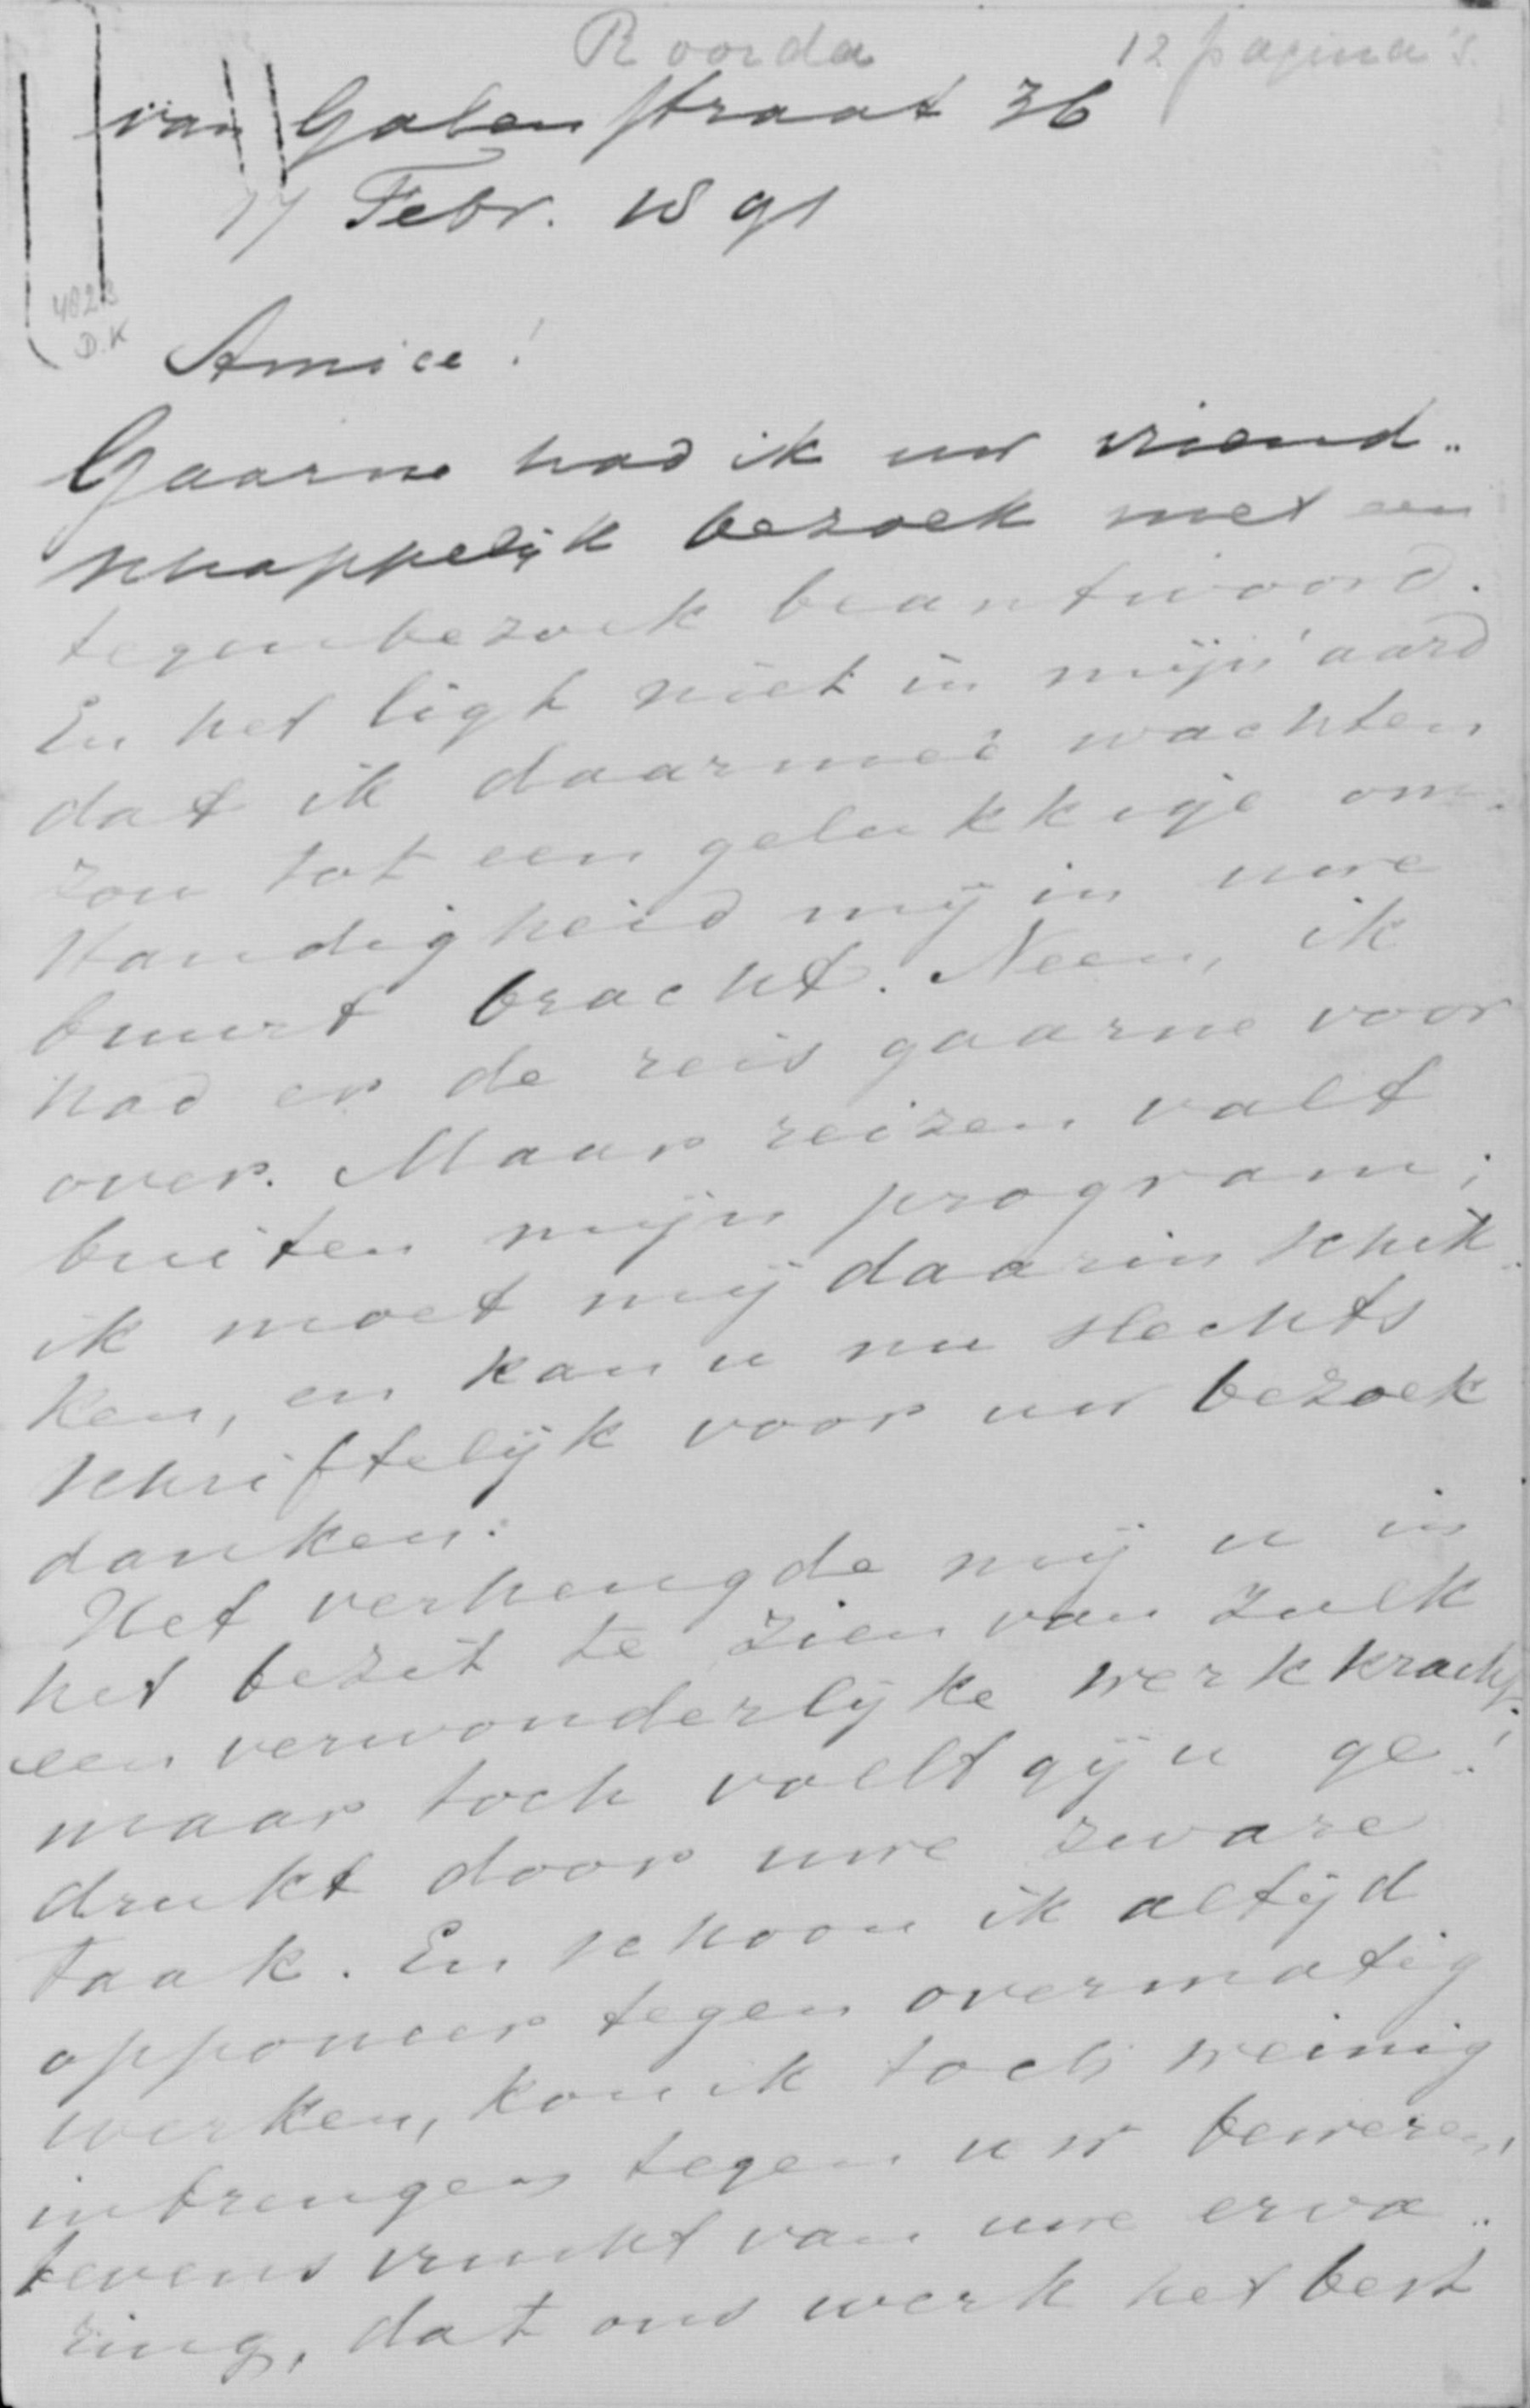 Roorda 12 pagina's.
van Galenstraat 36
17 Febr. 1891
4823
D.K
Amice!
Gaarne had ik uw vriend-
schappelijk bezoek met een
tegenbezoek beantwoord.
En het ligt niet in mijn aard
dat ik daarmeê wachten
zou tot een gelukkige om-
standigheid mij in uwe
buurt bracht. Neen, ik
had er de reis gaarne voor
over. Maar reizen valt
buiten mijn program;
ik moet mij daarin schik-
ken, en kan u nu slechts
schriftelijk voor uw bezoek
danken.
Het verheugde mij u in
het bezit te zien van zulk
een verwonderlijke werkkracht.
maar toch voelt gij u ge-
drukt door uwe zware
taak. En schoon ik altijd
opponeer tegen overmatig
werken, kon ik toch weinig
inbrengen tegen uw beweren,
tevens vrucht van uwe erva-
ring, dat ons werk het best